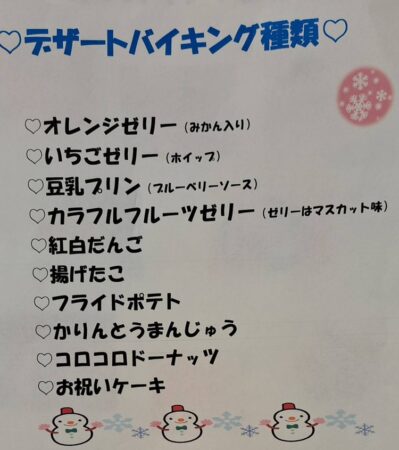 ♡デザートバイキング種類♡
♡オレンジゼリー（みかん入り）
♡いちごゼリー（ホイップ）
♡豆乳プリン（ブルーベリーソース）
♡カラフルフルーツゼリー（ゼリーはマスカット味）
♡紅白だんご
♡揚げたこ
♡フライドポテト
♡かりんとうまんじゅう
♡コロコロドーナッツ
♡お祝いケーキ